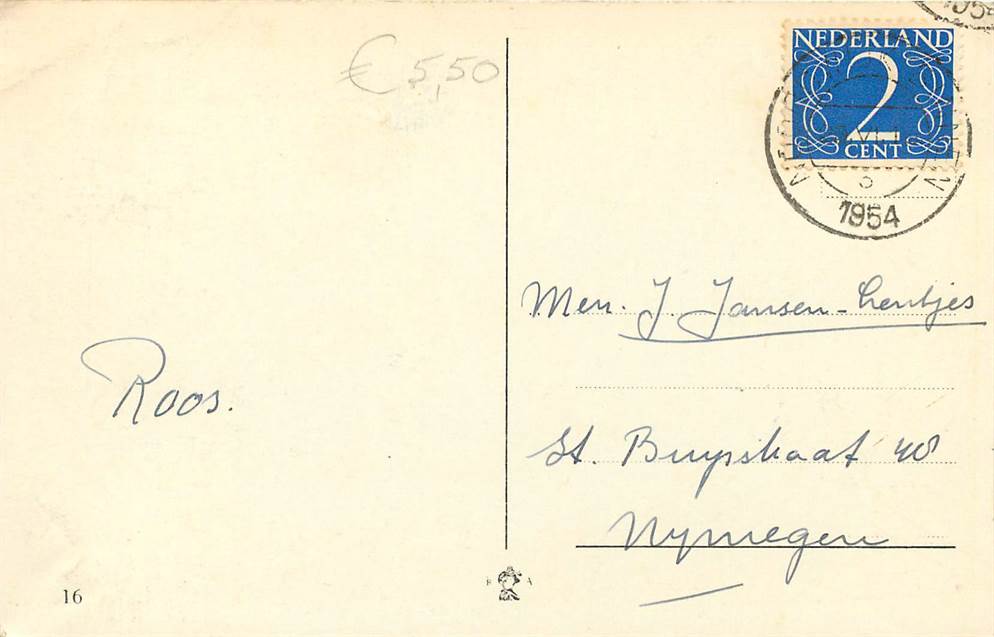 € 5,50
NEDERLAND
2
CENT
1954
Roos.
Mevr. J. Jansen-Lentjes
St. Buysstraat 40
Nymegen
16